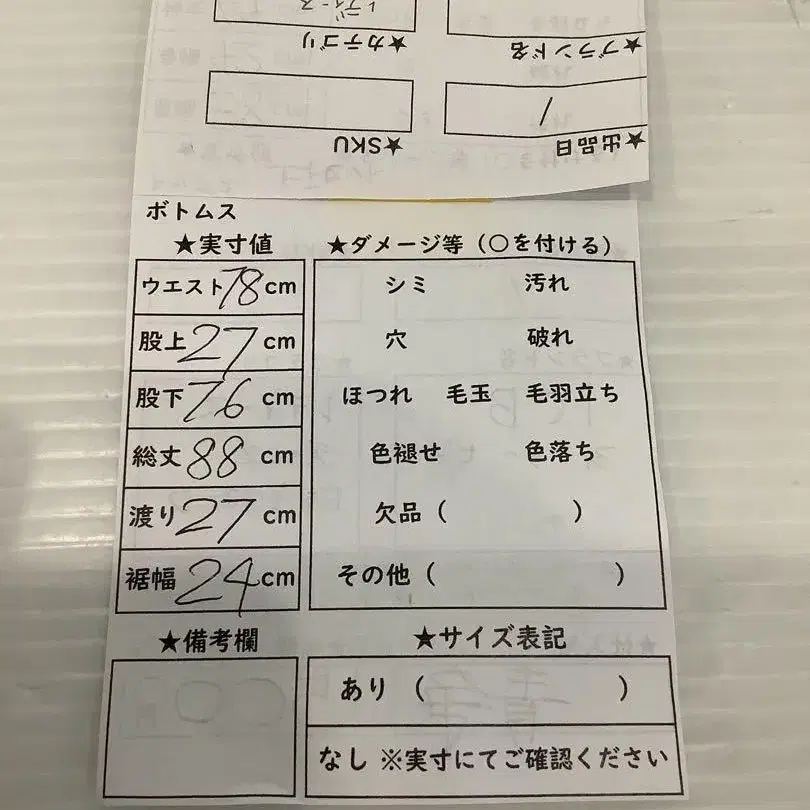 レディース
★カテゴリ
★ブランド名
/
★SKU
★出品日
ボトムス
★実寸値
★ダメージ等(〇を付ける)
ウエスト78cm
股上27cm
股下76cm
総丈88cm
渡り27cm
裾幅24cm
シミ 汚れ
穴 破れ
ほつれ 毛玉 毛羽立ち
色褪せ 色落ち
欠品( )
その他( )
★備考欄
★サイズ表記
あり ( )
なし ※実寸にてご確認ください